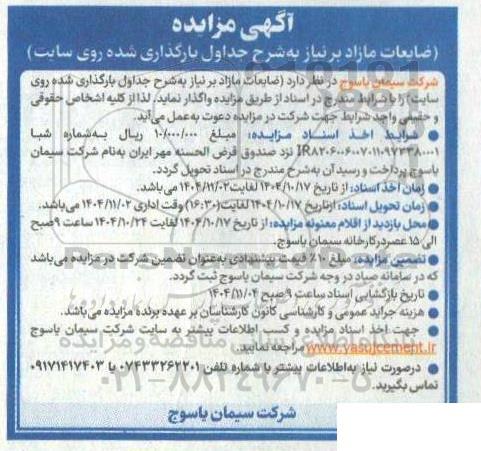 آگهی مزایده
(ضایعات مازاد بر نیاز به‌شرح جداول بارگذاری شده روی سایت)
شرکت سیمان یاسوج در نظر دارد (ضایعات مازاد بر نیاز به‌شرح جداول بارگذاری شده روی
سایت) را با شرایط مندرج در اسناد از طریق مزایده واگذار نماید. لذا از کلیه اشخاص حقوقی
و حقیقی واجد شرایط جهت شرکت در مزایده دعوت به‌عمل می‌آید.
● شرایط اخذ اسناد مزایده: مبلغ ۱۰/۰۰۰/۰۰۰ ریال به‌شماره شبا
نزد صندوق قرض الحسنه مهر ایران به‌نام شرکت سیمان
یاسوج پرداخت و رسید آن به‌شرح مندرج در اسناد تحویل گردد.
● زمان اخذ اسناد: از تاریخ ۱۴۰۴/۱۰/۱۷ لغایت ۱۴۰۴/۱۱/۰۲ می‌باشد.
● زمان تحویل اسناد: ازتاریخ ۱۴۰۴/۱۰/۱۷ لغایت (۱۶:۳۰) وقت اداری ۱۴۰۴/۱۱/۰۲ می‌باشد.
● محل بازدید از اقلام معنونه مزایده: از تاریخ ۱۴۰۴/۱۰/۱۷ لغایت ۱۴۰۴/۱۰/۲۴ ساعت ۹ صبح
الی ۱۵ عصر در کارخانه سیمان یاسوج.
● تضمین مزایده: مبلغ ۱۰٪ قیمت پیشنهادی به‌عنوان تضمین شرکت در مزایده می‌باشد
که در سامانه صیاد در وجه شرکت سیمان یاسوج ثبت گردد.
● تاریخ بازگشایی اسناد ساعت ۹ صبح ۱۴۰۴/۱۱/۰۴
هزینه جراید عمومی و کارشناسی کانون کارشناسان بر عهده برنده مزایده می‌باشد.
● جهت اخذ اسناد مزایده و کسب اطلاعات بیشتر به سایت شرکت سیمان یاسوج
www.yasujcement.ir مراجعه نمایید.
● درصورت نیاز به‌اطلاعات بیشتر با شماره تلفن ۰۷۴۳۳۲۶۲۲۰۱ یا ۰۹۱۷۱۴۱۷۴۰۳
تماس بگیرید.
شرکت سیمان یاسوج